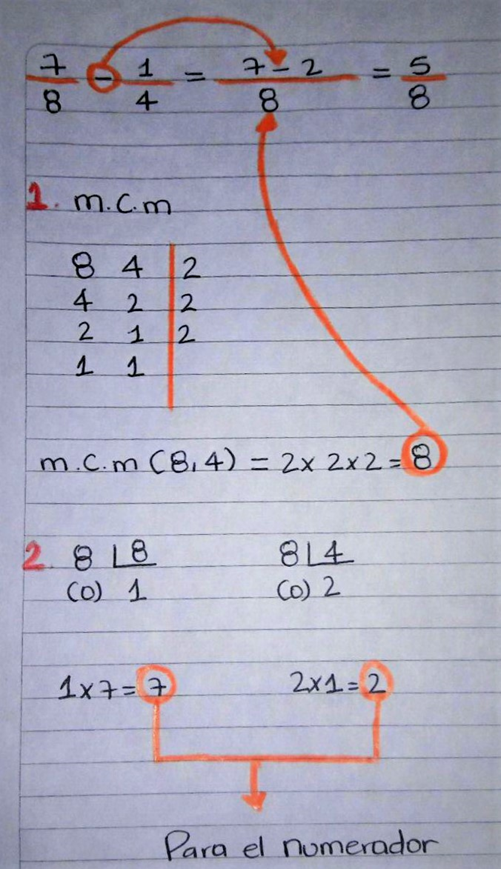 7/8 - 1/4 = 7-2/8 = 5/8
1. m.c.m
8 4 | 2
4 2 | 2
2 1 | 2
1 1 |
m.c.m (8,4) = 2x 2x2 = 8
2. 8 |8 8 |4
(0) 1 (0) 2
1x7= 7 2x1= 2
Para el numerador